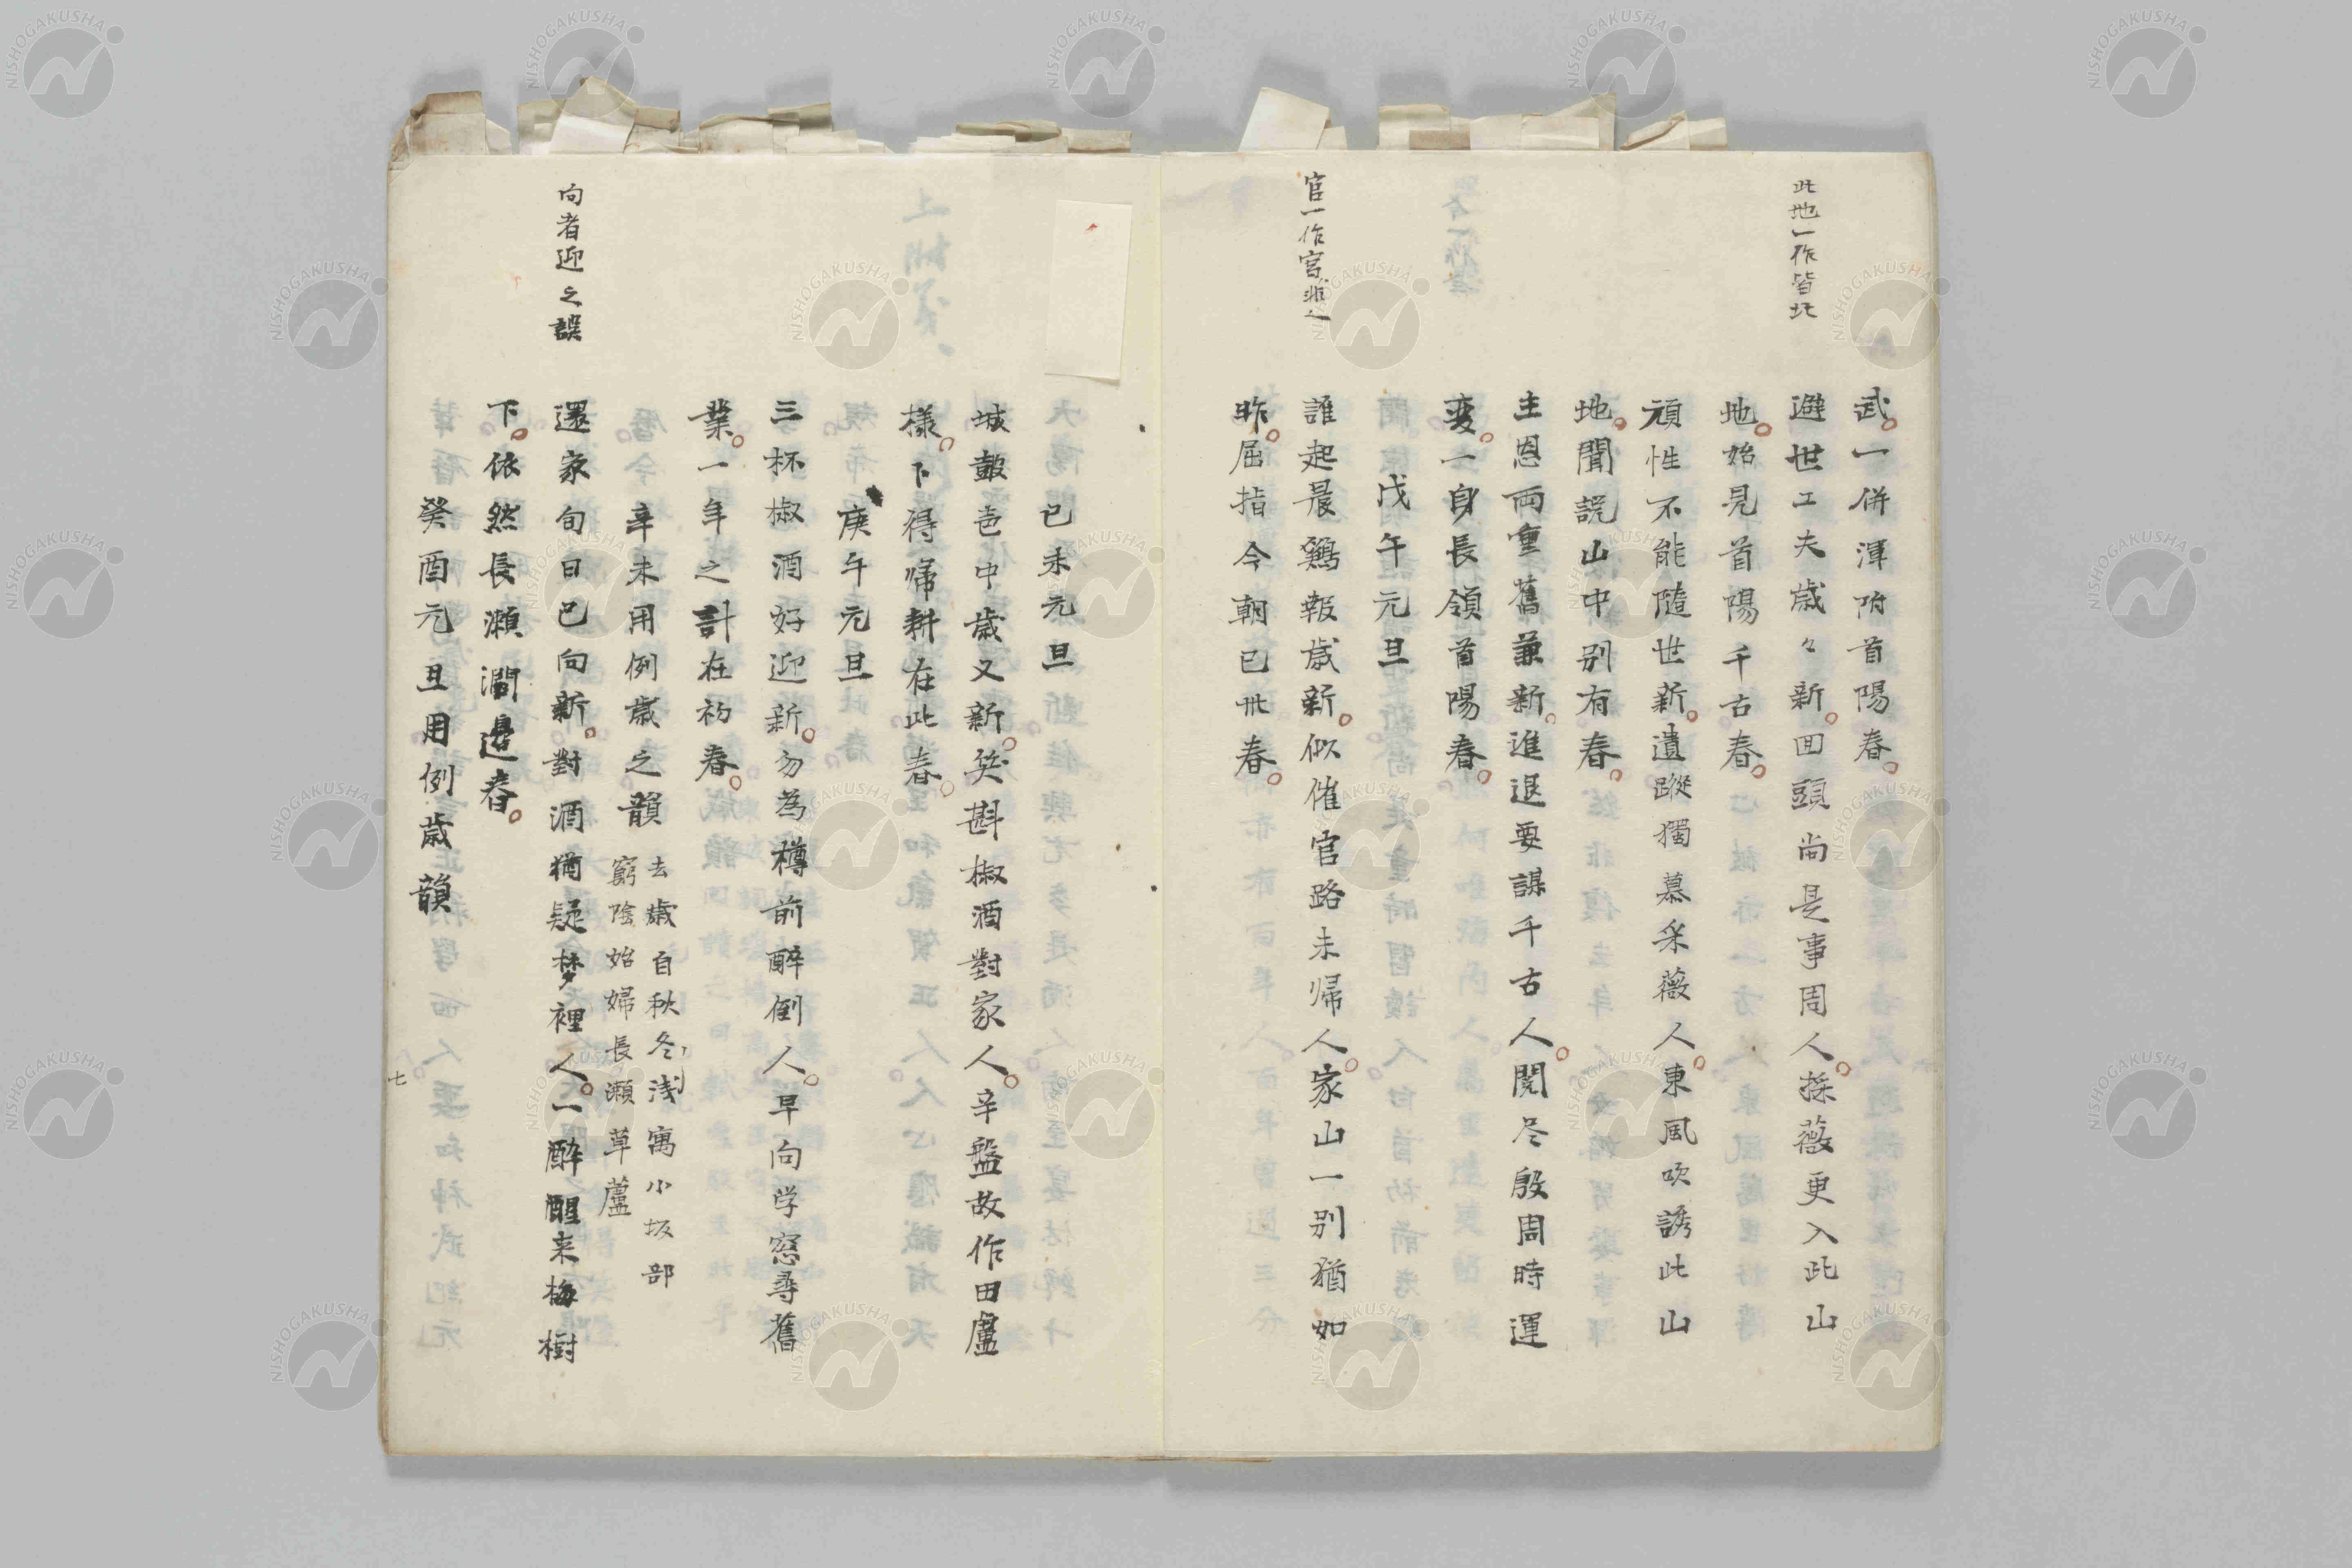 此地一作皆北
武。一併渾附首陽春。
避世工夫歳々新。回頭尚是事周人。採薇更入此山
地。始見首陽千古春。
頑性不能隨世新。遺蹤獨慕采薇人。東風吹誘此山
地。聞説山中別有春。
主恩両重舊兼新。進退要謀千古人。閲尽殷周時運
変。一身長領首陽春。
戊午元旦
官一作宮非
誰起晨鷄報歳新。似催官路未帰人。家山一別猶如
昨。屈指今朝已卅春。
己未元旦
城皷壱中歳又新。笑斟椒酒對家人。辛盤故作田盧
樣。卜得帰耕在此春。
庚午元旦
三杯椒酒好迎新。勿為樽前醉倒人。早向学窓尋舊
業。一年之計在初春。
辛未用例歳之韻
去歳自秋冬浅寓小坂部
窮陰始婦長瀬草蘆
向者迎之誤
還家旬日已向新。對酒猶疑梦裡人。一醉醒来梅樹
下。依然長瀬澗邉春。
癸酉元旦用例歳韻
七
NISHOGAKUSHA